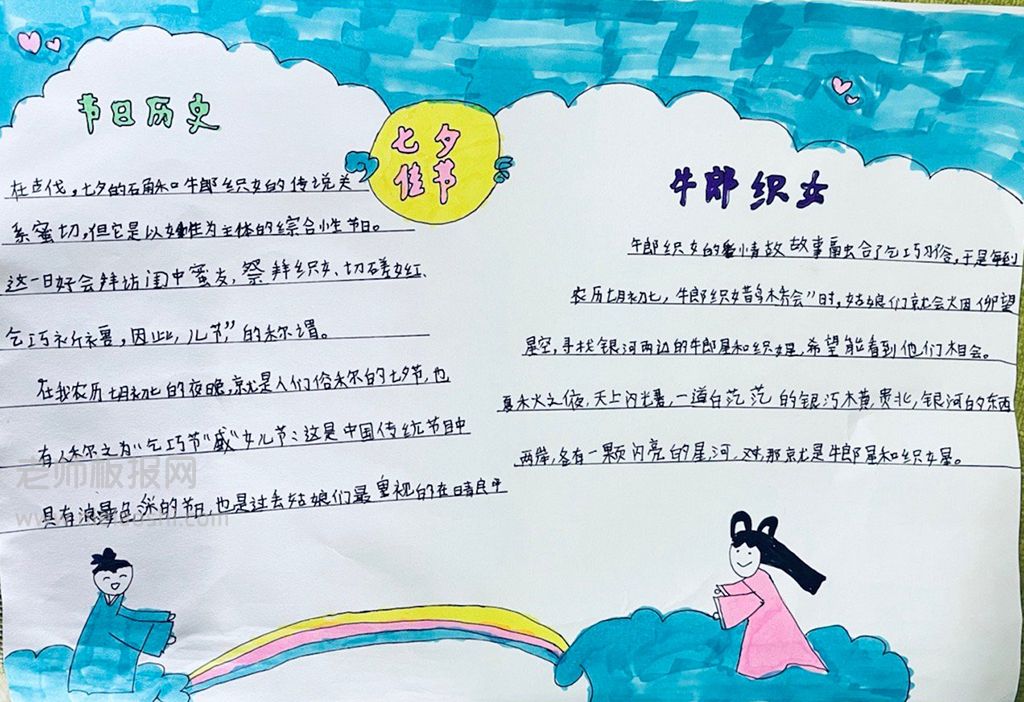 七夕
佳节
节日历史
在古代，七夕的石和牛郎织女的传说关
系蜜切，但它是以女性为主体的综合性节日。
这一日好会拜访闺中蜜友，祭拜织女、切磋女红、
乞巧祈，因此，儿节”的称谓。
在我农历七月初七的夜晚，就是人们俗称的七夕节，也
有人称之为“乞巧节”或“女儿节：这是中国传统节日中
具有浪漫色的节日，也是过去姑娘们最重视的在日晴良平
牛郎织女
牛郎织女的情故故事融合了乞巧习俗，于是每到
农历七月初七，牛郎织女会”日时，姑娘们就会仰望
星空，寻找银河两边的牛郎星和织女星，希望能看到他们相会。
夏之夜，天上闪，一道白茫茫的银河横贯北，银河的东西
两岸，各有一颗闪亮的星河，对，那就是牛郎星和织女星。
老师板报网